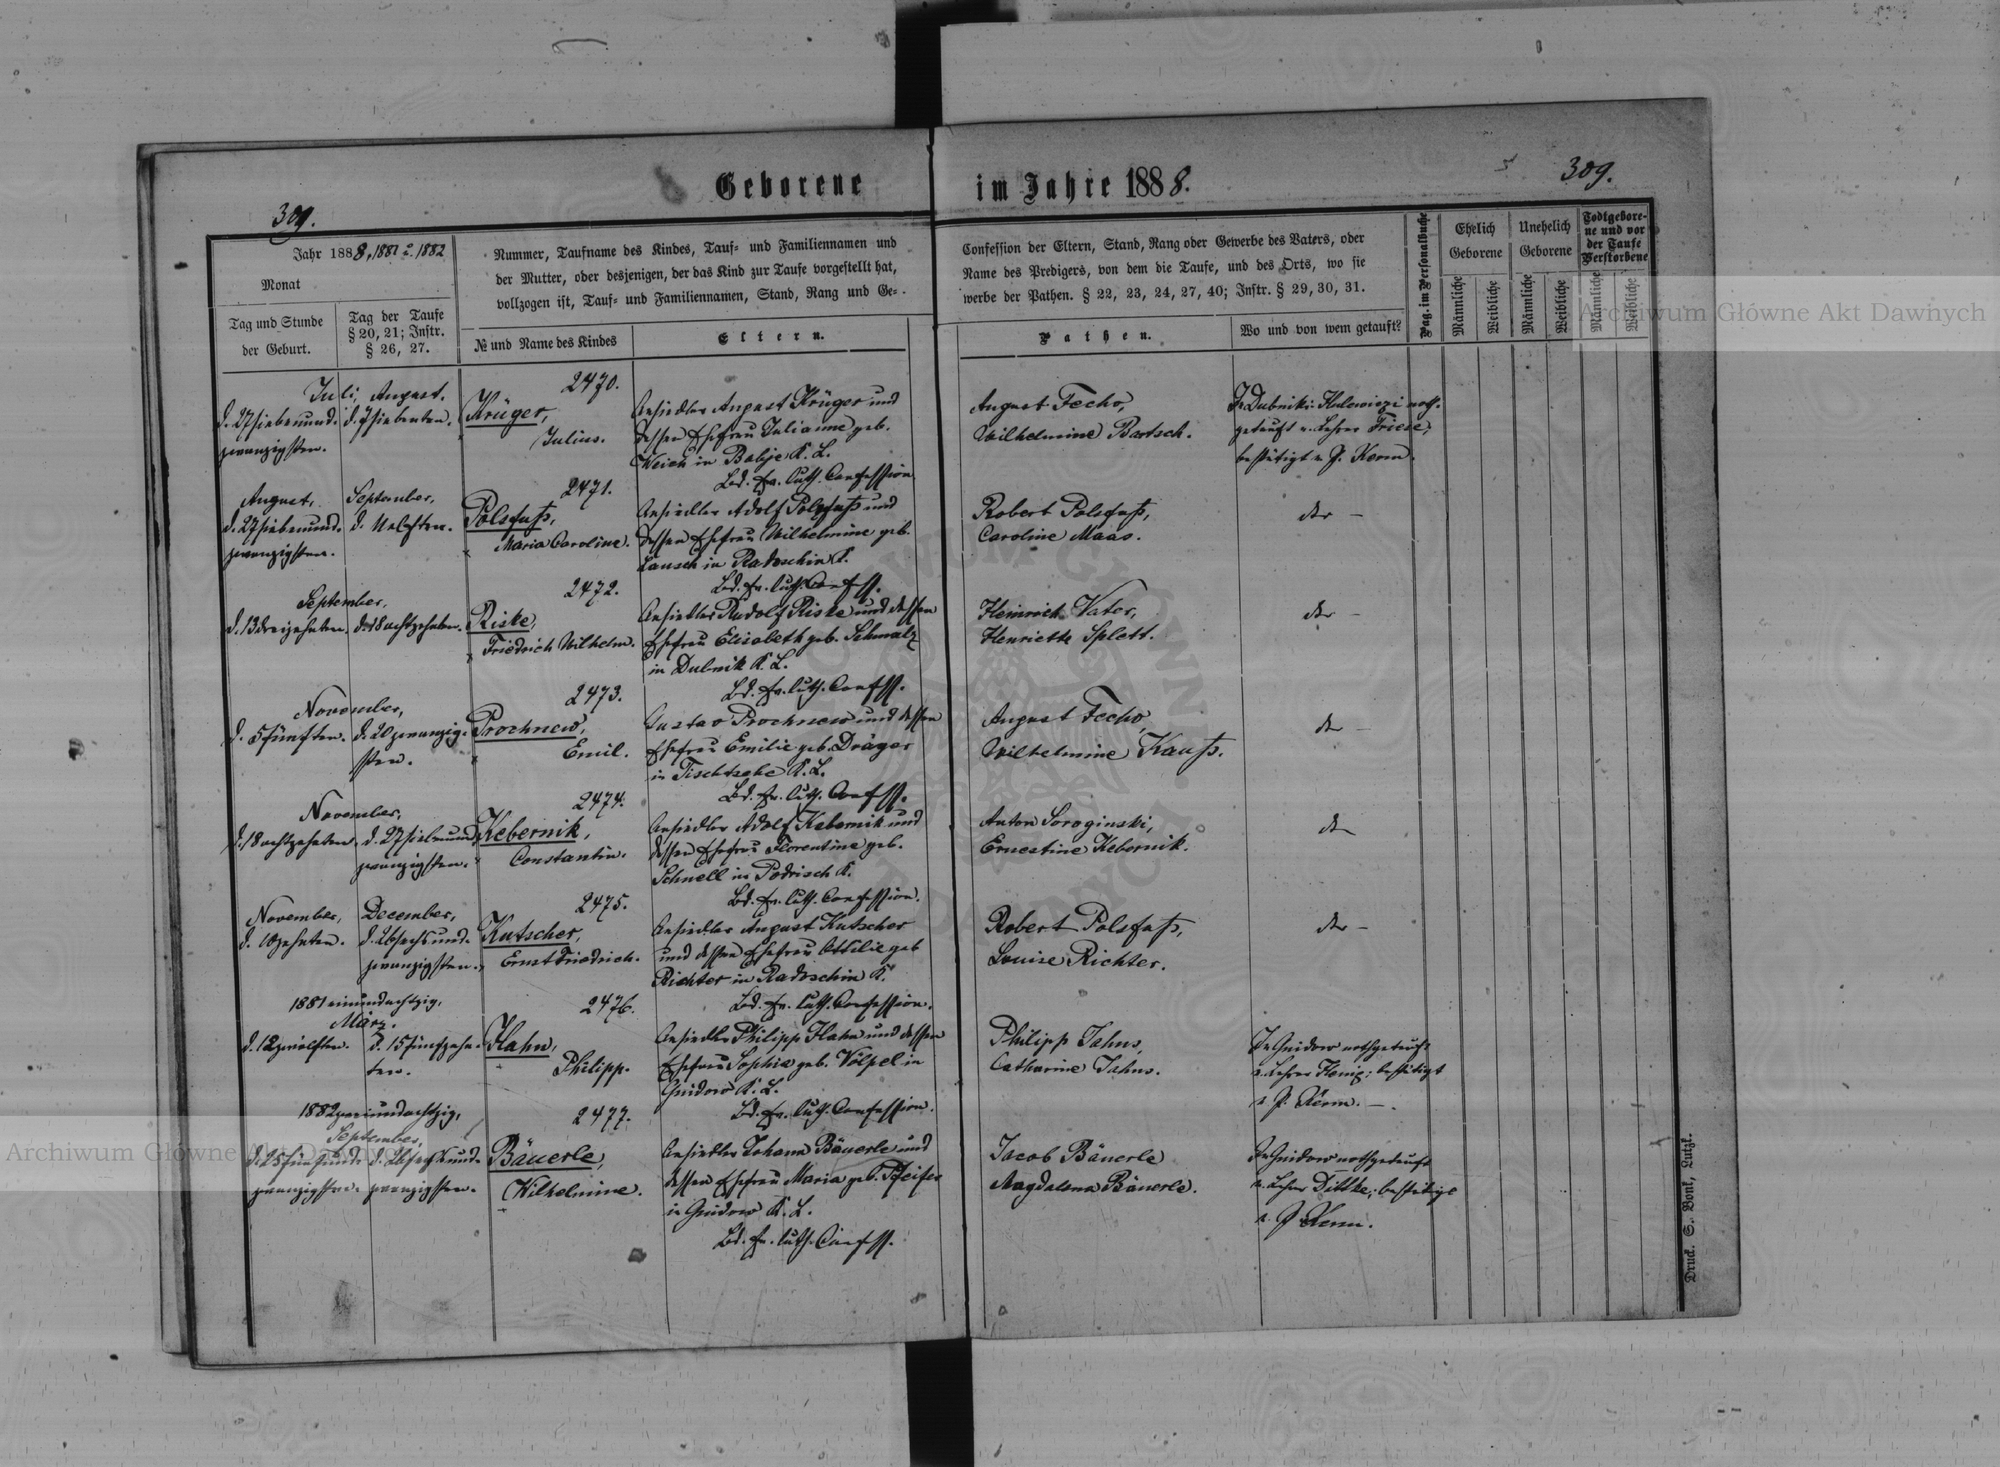 Geborene im Jahre 1888.
309.
309.
Jahr 1888, 1881 u. 1882
Monat
Tag und Stunde
der Geburt.
Tag der Taufe
§ 20, 21; Instr.
§ 26, 27.
Nummer, Taufname des Kindes, Tauf- und Familiennamen und
der Mutter, oder desjenigen, der das Kind zur Taufe vorgestellt hat,
vollzogen ist, Tauf- und Familiennamen, Stand, Rang und Ge-
№ und Name des Kindes
Eltern.
Confession der Eltern, Stand, Rang oder Gewerbe des Vaters, oder
Name des Predigers, von dem die Taufe, und des Orts, wo sie
werbe der Pathen. § 22, 23, 24, 27, 40; Instr. § 29, 30, 31.
Pathen.
Wo und von wem getauft?
Pag. im Personalbuche
Ehelich
Geborene
Männliche
Weibliche
Unehelich
Geborene
Männliche
Weibliche
Todtgebore-
ne und vor
der Taufe
Verstorbene
Männliche
Weibliche
Juli, August.
d. 27 siebenund-
zwanzigsten.
d. 7 siebenten.
2470.
Krüger,
Julius.
Ansiedler August Krüger und
dessen Ehefrau Julianne geb.
Weich in Babje K. L.
Bd. Ev. luth. Confession
August Fecho,
Wilhelmine Bartsch.
In Dubniki-Kulewiczi noth-
getauft v. Lehrer Friese,
bestätigt v. P. Kerm.
August,
d. 27 siebenund-
zwanzigsten.
September,
d. 11 elften.
2471.
Polsfuß,
Maria Caroline.
Ansiedler Adolf Polsfuß und
dessen Ehefrau Wilhelmine geb.
Lausch in Radoschin K.
Bd. Ev. luth. Confess.
Robert Polsfuß,
Caroline Maas.
dto —
September,
d. 13 dreizehnten.
d. 18 achtzehnten.
2472.
Riske,
Friedrich Wilhelm.
Ansiedler Rudolf Riske und dessen
Ehefrau Elisabeth geb. Schmalz
in Dubnik K. L.
Bd. Ev. luth. Confess.
Heinrich Vater,
Henriette Splett.
dto —
November,
d. 5 fünften.
d. 20 zwanzig-
sten.
2473.
Prochnew,
Emil.
Gustav Prochnew und dessen
Ehefrau Emilie geb. Dräger
in Tischtsche K. L.
Bd. Ev. luth. Confess.
August Fecho,
Wilhelmine Kauß.
dto —
November,
d. 18 achtzehnten.
d. 27 siebenund-
zwanzigsten.
2474.
Kebernik,
Constantin.
Ansiedler Adolf Kebernik und
dessen Ehefrau Florentine geb.
Schnell in Podrisch K.
Bd. Ev. luth. Confession.
Anton Soroginski,
Ernestine Kebernik.
dto
November,
d. 10 zehnten.
December,
d. 26 sechsund-
zwanzigsten.
2475.
Kutscher,
Ernst Friedrich.
Ansiedler August Kutscher
und dessen Ehefrau Ottilie geb
Richter in Radoschin K.
Bd. Ev. luth. Confession.
Robert Polsfuß,
Louise Richter.
dto —
1881 einundachtzig,
März.
d. 12 zwölften.
d. 15 fünfzehn-
ten.
2476.
Hahn,
Philipp.
Ansiedler Philipp Hahn und dessen
Ehefrau Sophia geb. Völpel in
Gnidow K. L.
Bd. Ev. luth. Confession.
Philipp Jahns,
Catharine Jahns.
In Gnidow nothgetauft
v. Lehrer Henig; bestätigt
v. P. Kerm. —
1882 zweiundachtzig,
September,
d. 25 fünfund-
zwanzigsten.
d. 26 sechsund-
zwanzigsten.
2477.
Bäuerle,
Wilhelmine.
Ansiedler Johann Bäuerle und
dessen Ehefrau Maria geb. Pfeifer
in Gnidow K. L.
Bd. Ev. luth. Confess.
Jacob Bäuerle
Magdalena Bäuerle.
In Gnidow nothgetauft
v. Lehrer Dittke; bestätigt
v. P. Kerm.
Druck. S. Bonk, Lutzk.
Archiwum Główne Akt Dawnych
Archiwum Główne Akt Dawnych